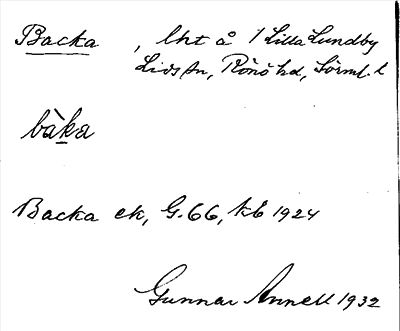 Backa, lht å 1 Lilla Lundby
Lids sn, Rönö hd, Sörml. l
bàka
Backa ek, G. 66, kb 1924
Gunnar Annell 1932